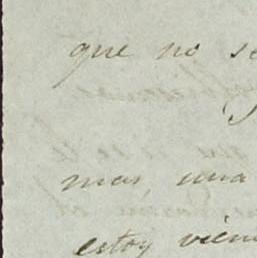 que no se
mas, una
estoy vien